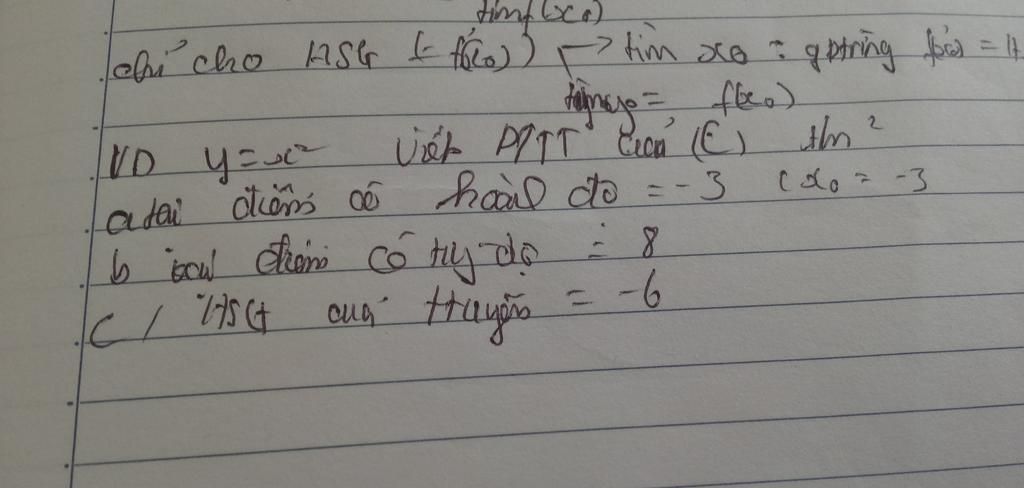 tìm f(x₀)
chỉ cho HSG (= f'(x₀)) → tìm x₀ = gptrìng f'(x₀) =
tìm y₀ = f(x₀)
VD y = x² Viết PTTT của (C)
a tại điểm có hoành độ = -3 (x₀ = -3
b tại điểm có tụ độ = 8
c / HSG của tt tuyến = -6